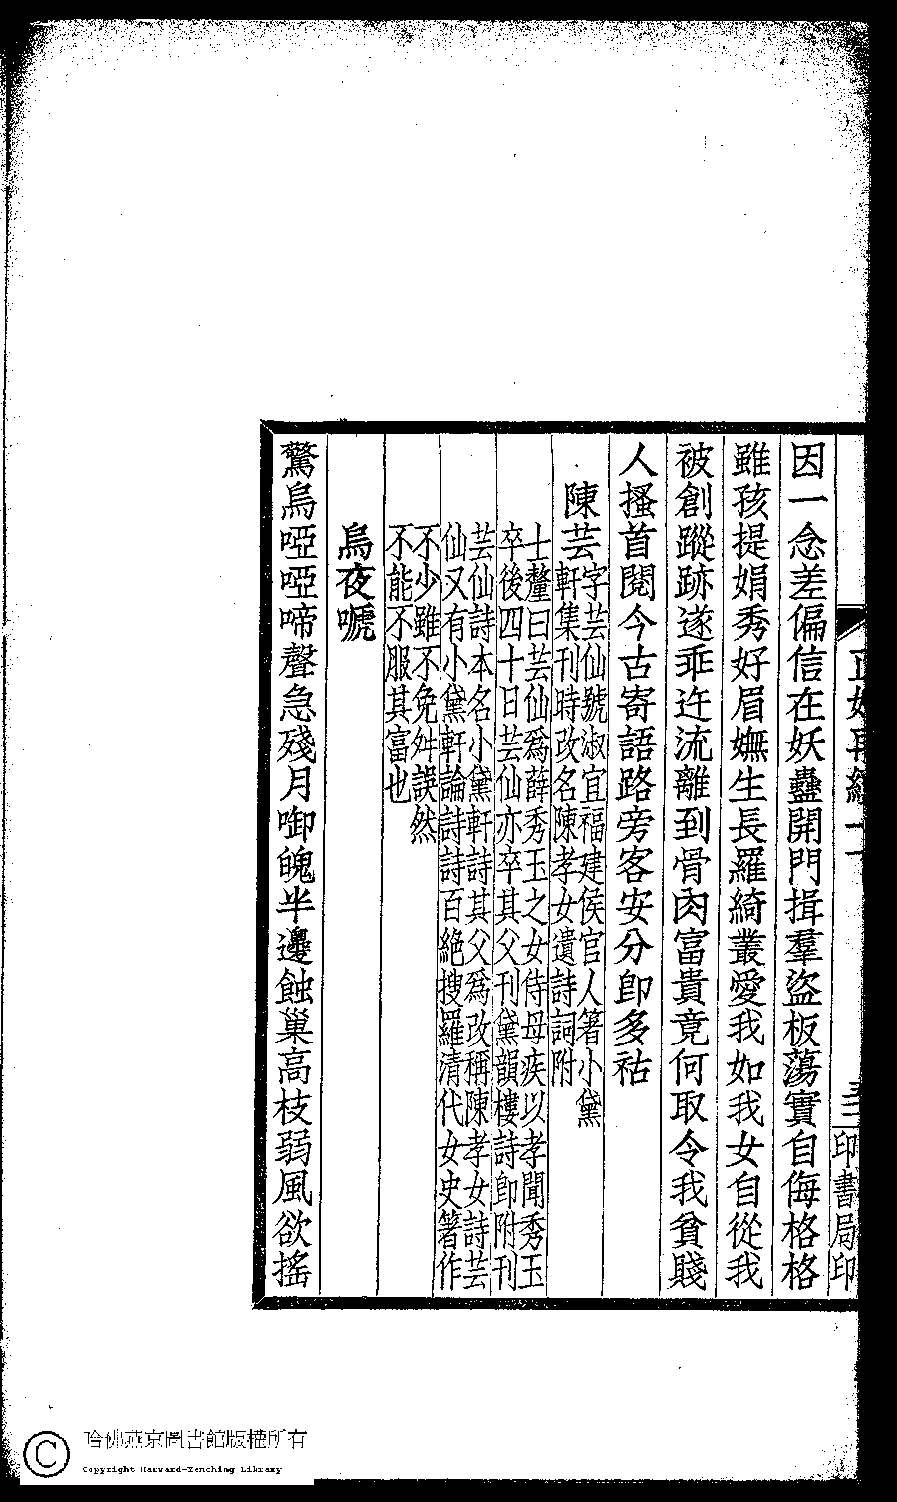 印書局印
因一念差偏信在妖蠱開門揖羣盜板蕩實自侮格格
雖孩提娟秀好眉嫵生長羅綺叢愛我如我女自從我
被創蹤跡遂乖迕流離到骨肉富貴竟何取令我貧賤
人搔首閱今古寄語路旁客安分即多祜
陳芸
字芸仙號淑宜福建侯官人箸小黛
軒集刊時改名陳孝女遺詩詞附
士釐曰芸仙爲薛秀玉之女侍母疾以孝聞秀玉
卒後四十日芸仙亦卒其父刊黛韻樓詩即附刊
芸仙詩本名小黛軒詩其父爲改稱陳孝女詩芸
仙又有小黛軒論詩詩百絶搜羅清代女史箸作
不少雖不免舛誤然
不能不服其富也
烏夜嗁
驚烏啞啞啼聲急殘月啣魄半邊蝕巢高枝弱風欲搖
哈佛燕京圖書館版權所有
Copyright Harvard-Yenching Library